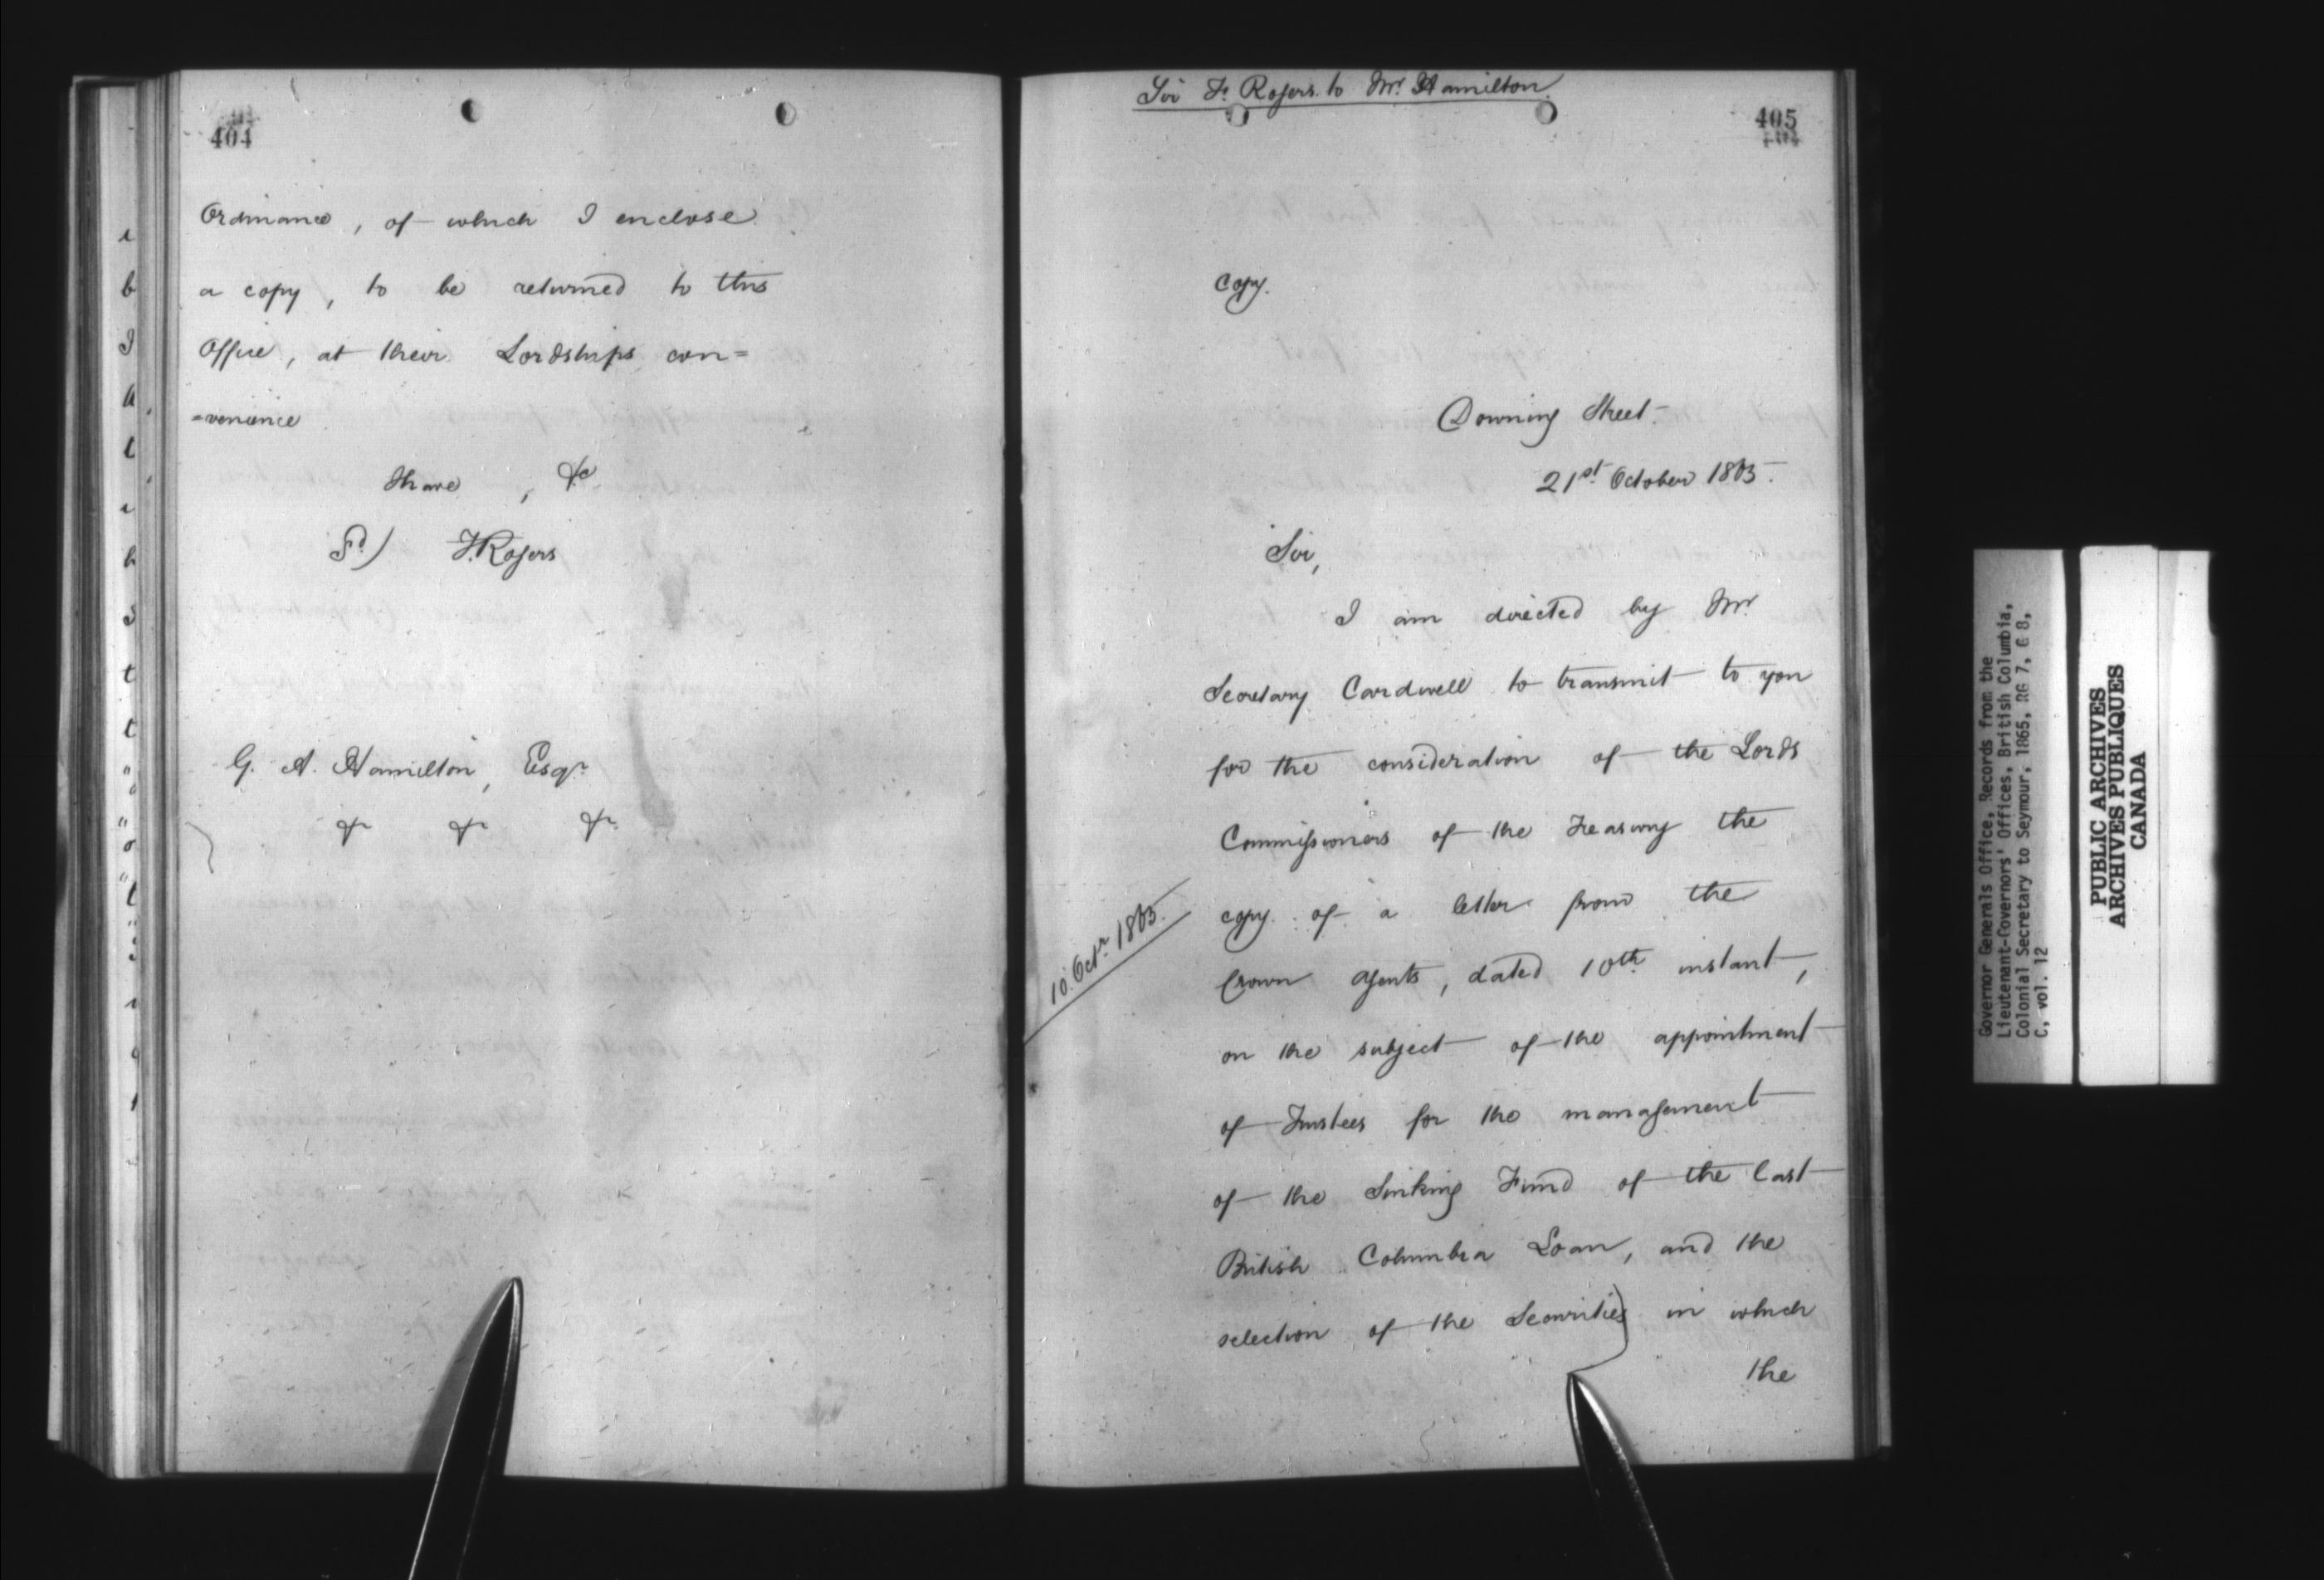 404
Ordinance, of which I enclose
a copy, to be returned to this
Office, at their Lordships con=
=venience
I have, &c
Sd) F. Rogers
G. A. Hamilton, Esqr
&c &c &c
Sir F. Rogers to Mr Hamilton.
405
Copy.
Downing Street.
21st October 1865.
Sir,
I am directed by Mr
Secretary Cardwell to transmit to you
for the consideration of the Lords
Commissioners of the Treasury the
copy of a letter from the
10 Octr 1865.
Crown Agents, dated 10th instant,
on the subject of the appointment
of Trustees for the management
of the Sinking Fund of the last
British Columbia Loan, and the
selection of the Securities in which
the
Governor Generals Office, Records from the
Lieutenant-Governors' Offices, British Columbia,
Colonial Secretary to Seymour, 1865, RG 7, G 8,
C, vol. 12
PUBLIC ARCHIVES
ARCHIVES PUBLIQUES
CANADA